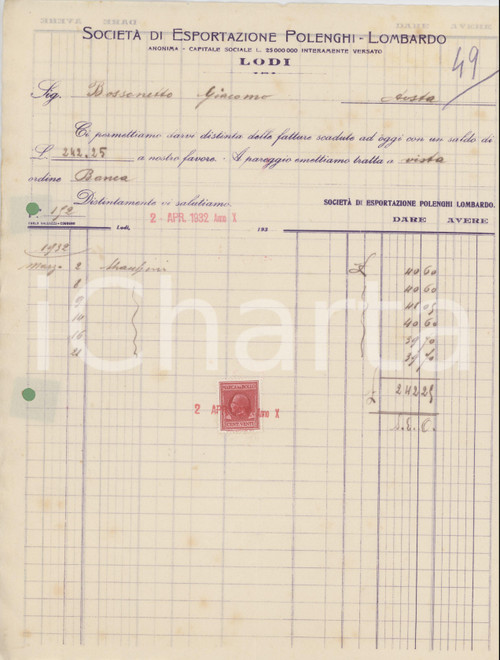 SOCIETÀ DI ESPORTAZIONE POLENGHI-LOMBARDO
ANONIMA - CAPITALE SOCIALE L. 25 000 000 INTERAMENTE VERSATO
LODI
49
Sig. Bossonetto Giacomo Aosta
Ci permettiamo darvi distinta delle fatture scadute ad oggi con un saldo di
L. 242.25 a nostro favore. A pareggio emettiamo tratta a vista
ordine Banca
Distintamente vi salutiamo.
SOCIETÀ DI ESPORTAZIONE POLENGHI LOMBARDO.
DARE AVERE
Lodi, 2 - APR. 1932 Anno X 193
1932
Marzo 2 40 60
8 40 60
9
10 40 60
16 39 70
21
242 25
MARCA DA BOLLO
2 APR Anno X
CENT. VENTI
S. E. O.
iCharta